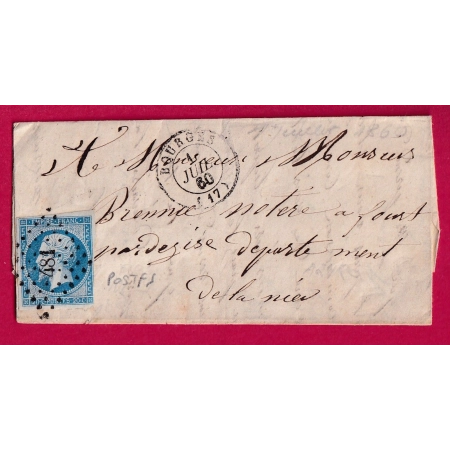 BOURGES
JUIL
60
(17)
A Monsieur Monsieur
Brenne notere a fourt
par dezise departement
de la niev
481
POSTFS